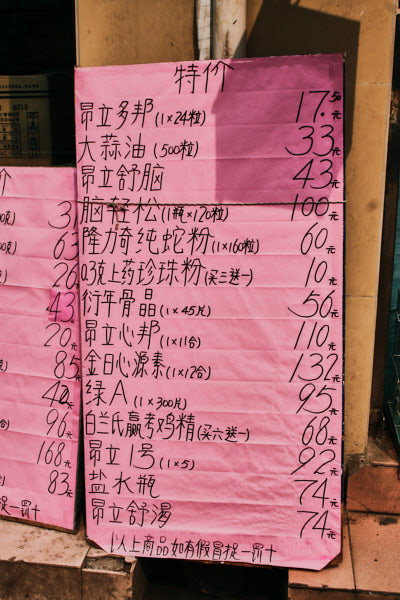 特价
昂立多邦(1×24粒) 17.50元
大蒜油(500粒) 33元
昂立舒脑 43元
脑轻松(1瓶×120粒) 100元
隆力奇纯蛇粉(1×160粒) 60元
0.3克上药珍珠粉(买三送一) 10元
衍年骨晶(1×45片) 56元
昂立心邦(1×11合) 110元
金日心源素(1×12合) 132元
绿A(1×300片) 95元
白兰氏赢考鸡精(买六送一) 68元
昂立1号(1×5) 92元
盐水瓶 74元
昂立舒渴 74元
以上商品如有假冒捉一罚十
价
克) 3
63
26
43
20元
85元
42元
合) 96元
168元
83元
捉一罚十